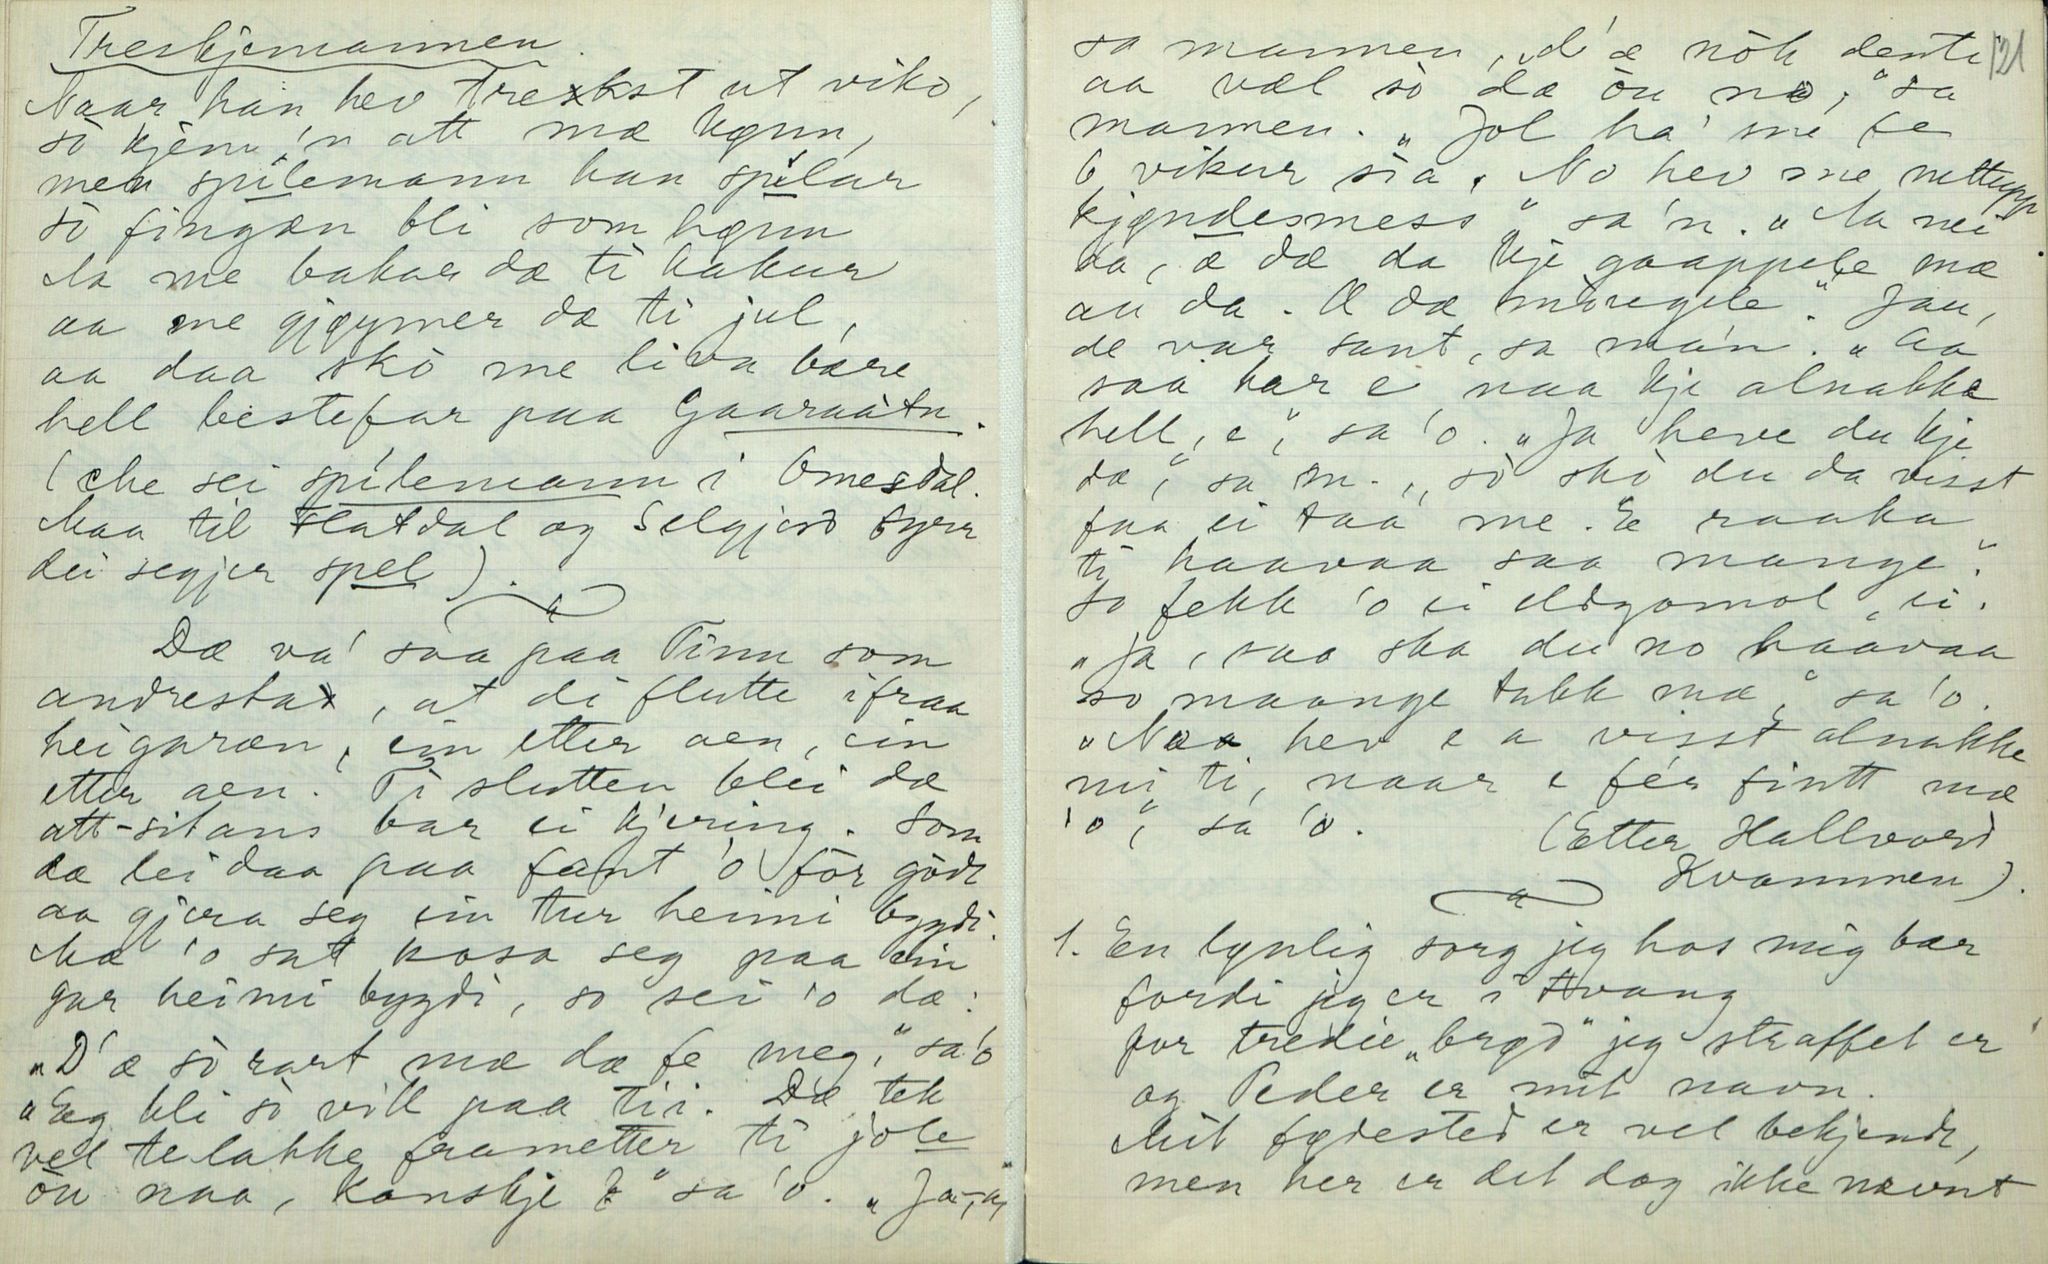 Treskjemannen.
Naar han hev treskst ut viko,
so kjem 'n att mæ kønn,
men spilemann han spilar
so fingæn bli som hønn
Na me bakar dæ ti kakur
aa me gjøymer dæ ti jul,
aa daa sko me liva bære
hell bestefar paa Gaaraatn.
(che sei spilemann i Omesdal.
Maa til Flatdal og Selgjord fyrr
dei segjer spel).
Dæ va' saa paa Tinn som
andresta, at di flutte ifraa
heigaræn, ein etter aen, ein
etter aen. Ti slutten blei dæ
att-sitans bar ei kjering. Som
dæ lei daa paa fant 'o för godt
aa gjera seg ein tur heimi bygdi.
Mæ 'o sat kosa seg paa ein
gar heimi bygdi, so sei 'o dæ:
„D'æ so rart mæ dæ fe meg," sa 'o
„Eg bli so vill paa tii. Dæ tek
vel te lakke frametter ti jole
òu naa, kanskje?" sa 'o. „Ja-,a,
sa mannen, „d'æ nök denti
aa væl so dæ òu no," sa
mannen. „Jol ha' me fe
6 vikur sia. No hev me nettupp
kjøndesmess" sa 'n. „Na nei
da, æ dæ da kje gaappele mæ
au da. Æ dæ möregele." Jau,
de var sant, sa ma'n. „Aa
saa har e naa kje alnakke
hell, e", sa 'o. „Ja heve du kje
dæ," sa 'n. „so sko du da visst
faa ei taa me. E raaka
ti haavaa saa mange".
So fekk 'o ei eldgomol ei.
„Ja, saa ska du no haavaa
so maange takk mæ," sa 'o.
„Naa hev e a visst alnakke
mi ti, naar e fér fintt mæ
'o", sa 'o.
(Etter Hallvord
Kvammen).
1. En lønlig sorg jeg hos mig bær
fordi jeg er i tvang
for tredie „brød" jeg straffet er
og Peder er mit navn.
Mit fødested er vel bekjendt,
men her er det dog ikke nævnt
121